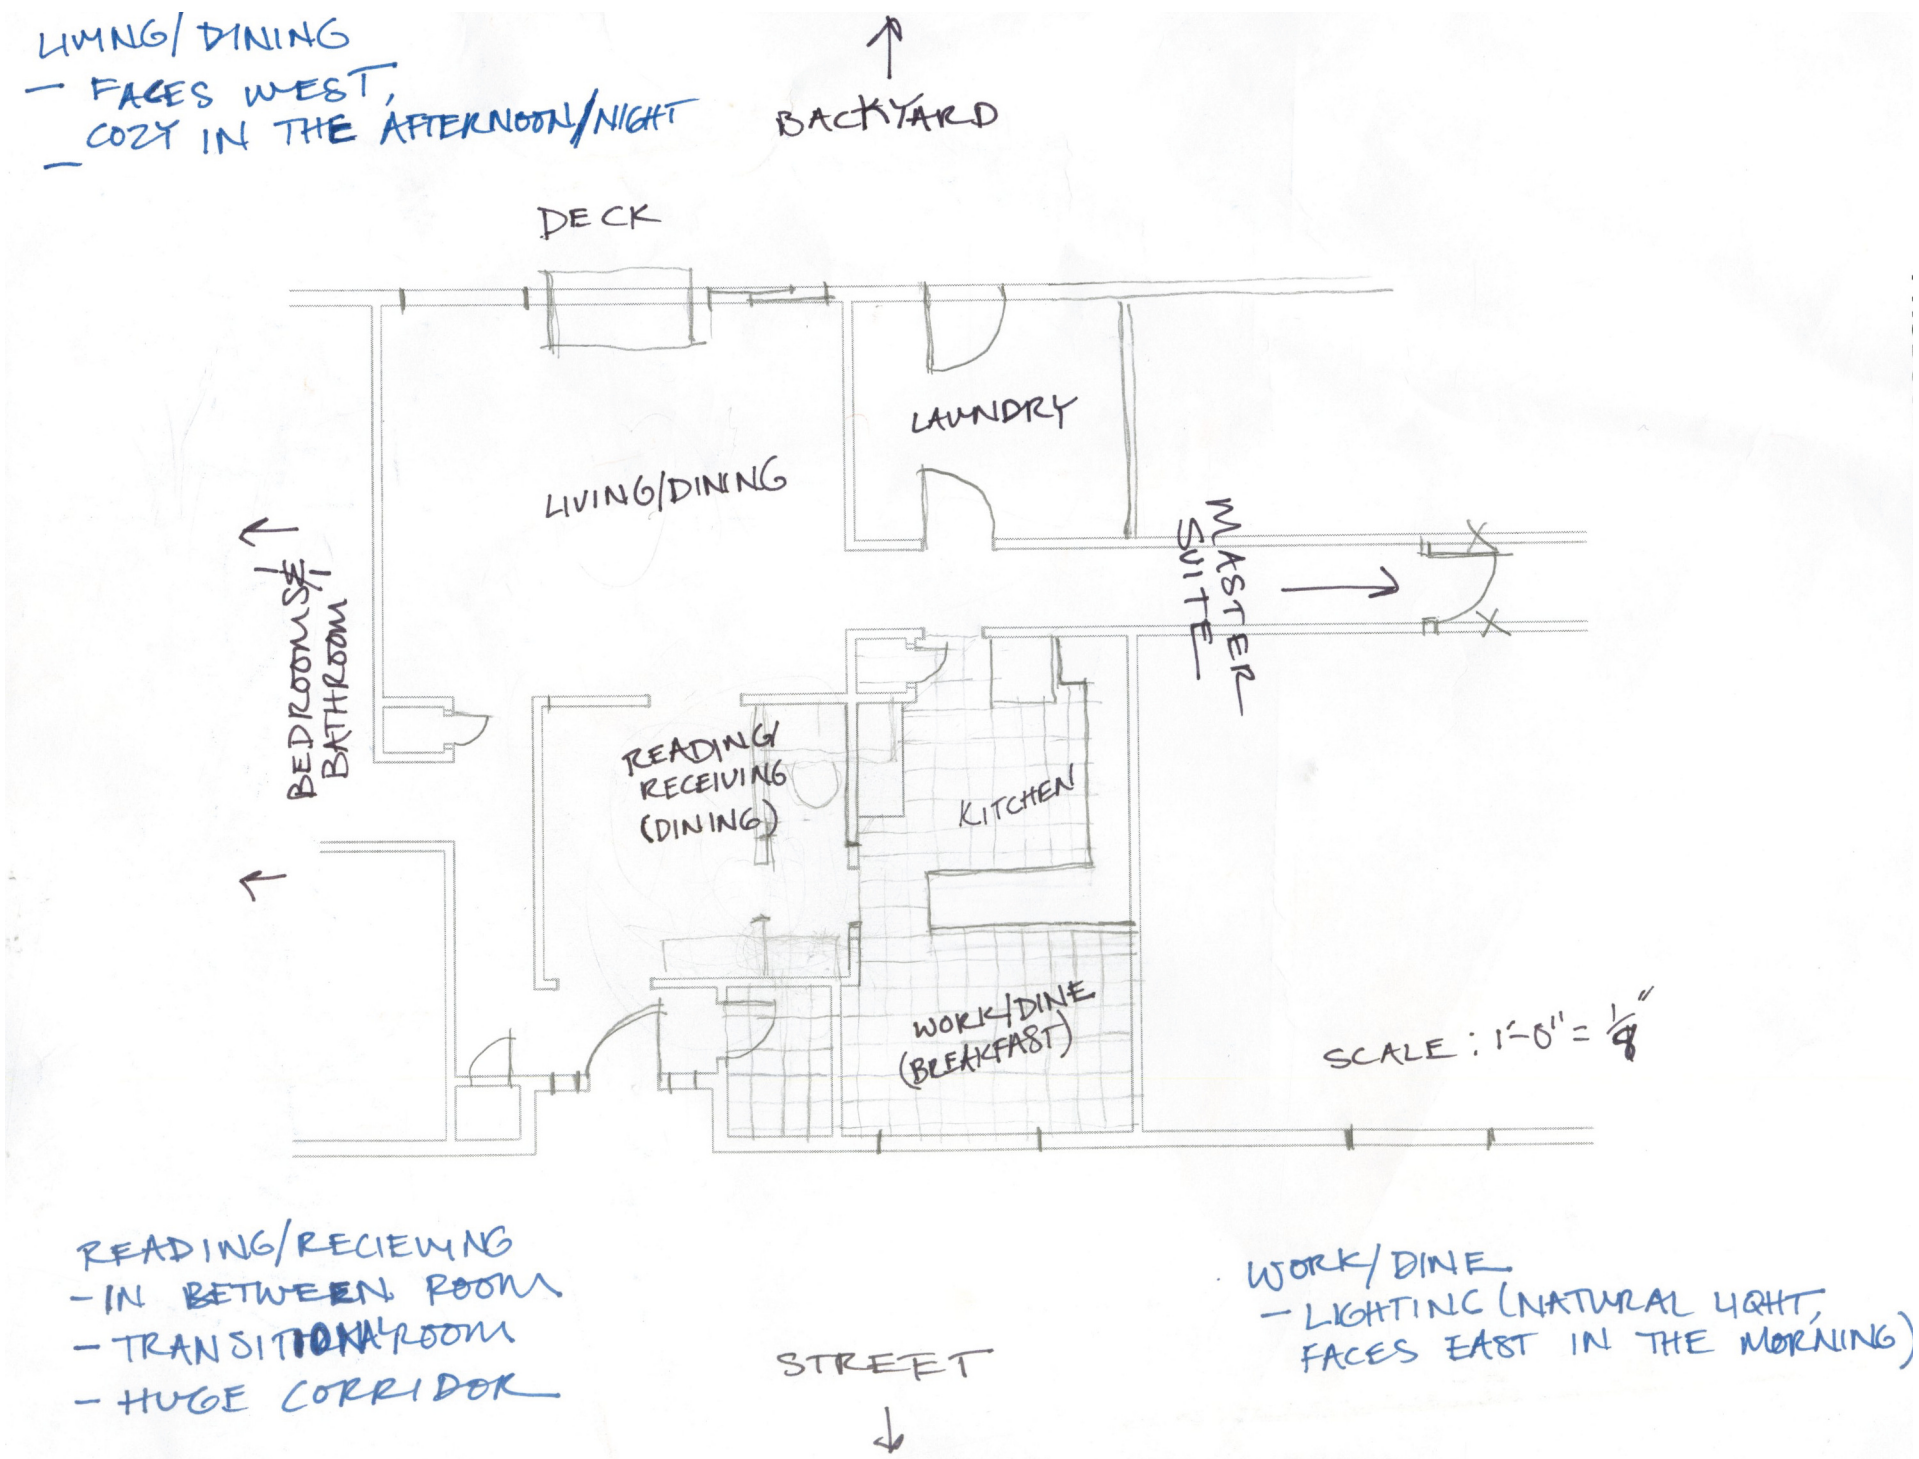 LIVING/DINING
- FACES WEST,
COZY IN THE AFTERNOON/NIGHT
-
BACKYARD
DECK
LAUNDRY
LIVING/DINING
MASTER
SUITE
BEDROOMS/
BATHROOM
READING/
RECEIVING
(DINING)
KITCHEN
WORK/DINE
(BREAKFAST)
SCALE: 1'-0" = 1/8"
READING/RECIEVING
- IN BETWEEN ROOM
- TRANSITIONAL ROOM
- HUGE CORRIDOR
WORK/DINE
- LIGHTING (NATURAL LIGHT,
FACES EAST IN THE MORNING)
STREET